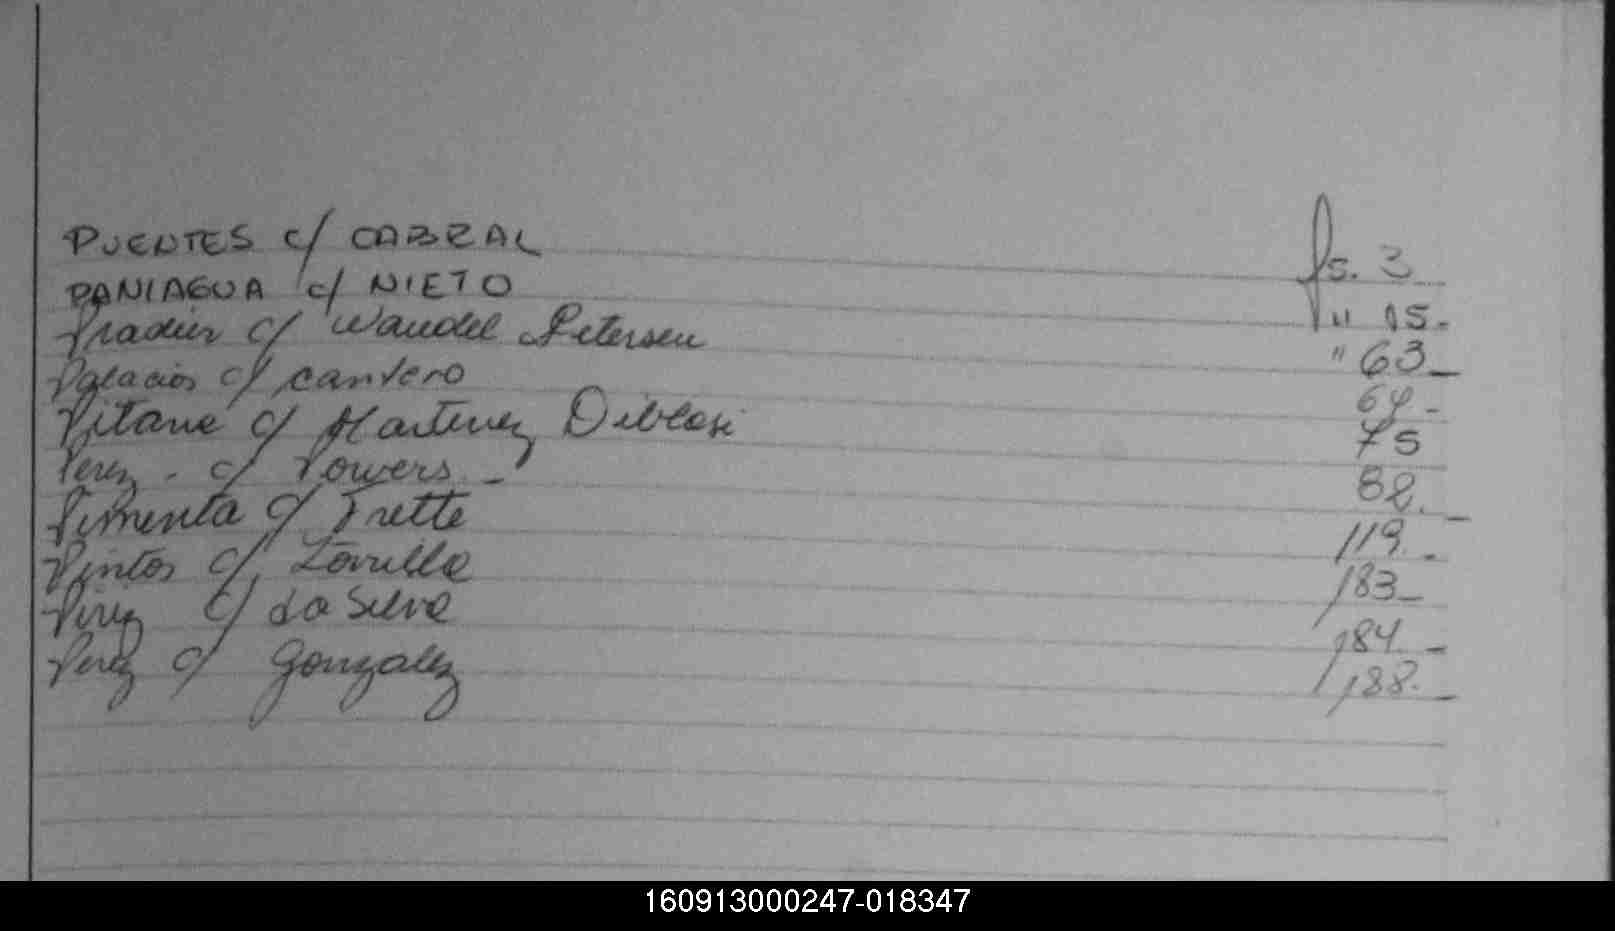 PUENTES c/ CABRAL fs. 3
PANIAGUA c/ NIETO " 15.
Pradier c/ Wandel Petersen " 63
Palacios c/ cantero 64-
Pitana c/ Martinez Diblasi 75
Perez - c/ Powers - 82.
Pimenta c/ Frette 119.
Pintos c/ 183
Perez c/ Da Silva 184
Perez c/ Gonzalez 188.
160913000247-018347